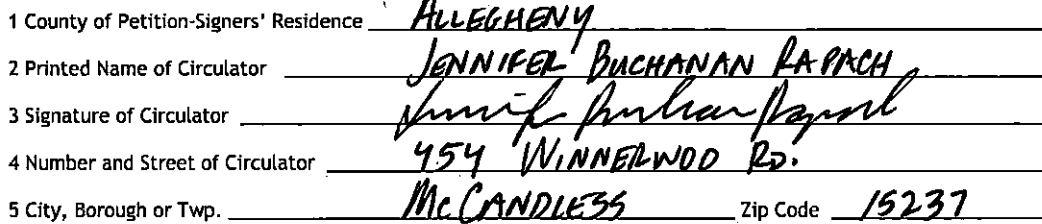 1 County of Petition-Signers' Residence ALLEGHENY
2 Printed Name of Circulator JENNIFER BUCHANAN RAPACH
3 Signature of Circulator Jennifer Buchanan Rapach
4 Number and Street of Circulator 454 WINNERWOD RD.
5 City, Borough or Twp. McCANDLESS Zip Code 15237